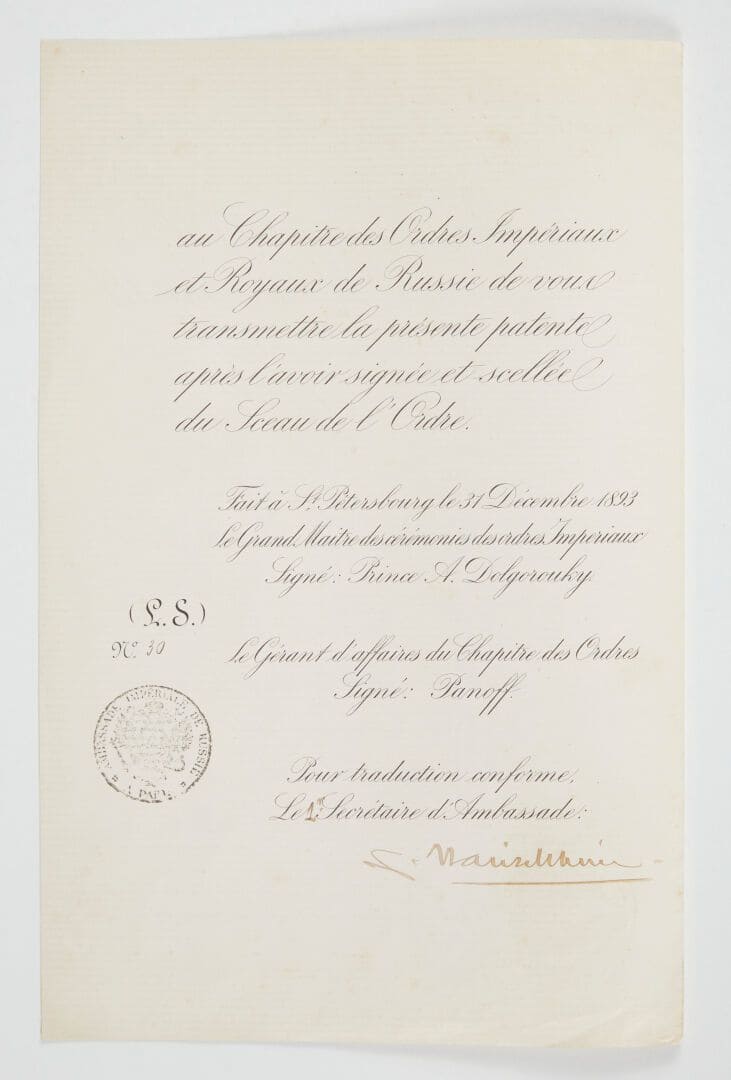 au Chapitre des Ordres Impériaux
et Royaux de Russie de vous
transmettre la présente patente
après l'avoir signée et scellée
du Sceau de l'Ordre.
Fait à St. Pétersbourg le 31 Décembre 1893
Le Grand Maitre des cérémonies des ordres Imperiaux
Signé: Prince A. Dolgorouky.
(L. S.)
No. 30
Le Gérant d'affaires du Chapitre des Ordres
Signé: Panoff.
AMBASSADE IMPÉRIALE DE RUSSIE
A PARIS
Pour traduction conforme.
Le 1er Secrétaire d'Ambassade: